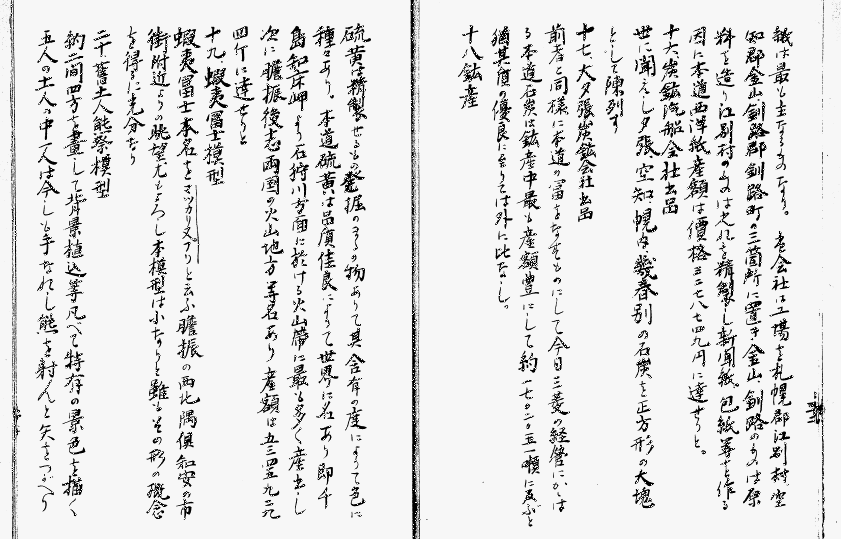 紙は最も主なるものなり。同会社は工場を札幌郡江別村空
知郡金山釧路郡釧路町の三箇所に置き金山、釧路のものは原
料を造り江別村のものは之れを精製し新聞紙、包紙等を作る
因に本道西洋紙産額は價格三二七八七四九円に達せりと。
十六炭鉱汽船会社出品
世に聞えし夕張、空知、幌内、幾春別の石炭を正方形の大塊
として陳列す
十七、大夕張炭鉱会社出品
前者と同様に本道の冨をなすものにして今日三菱の経営にかゝは
る本道石炭は鉱産中最も産額豊にして約一七〇二〇五一噸に及ぶと
猶其質の優良に至りては外に比なし。
十八鉱産
硫黄は精製せるもの発掘のまゝの物ありて其含有の度によりて色に
種々あり。本道硫黄は品質佳良によりて世界に名あり即千
島知床岬より石狩川方面に於ける火山帯に最も多く産出し
次に膽振後志両国の火山地方等名あり産額は五三四五九二九
四斤に達せりと
十九、蝦夷冨士模型
蝦夷冨士本名をマッカリヌプリと云ふ膽振の西北隅倶知安の市
街附近よりの眺望尤もよろし本模型は小なりと雖もその形の概念
を得るに充分なり
二十、舊土人熊祭模型
約二間四方を畫して背景植込等凡べて特有の景色を描く
五人の土人の中一人は今しも手なれし熊を射んと矢をつがへり